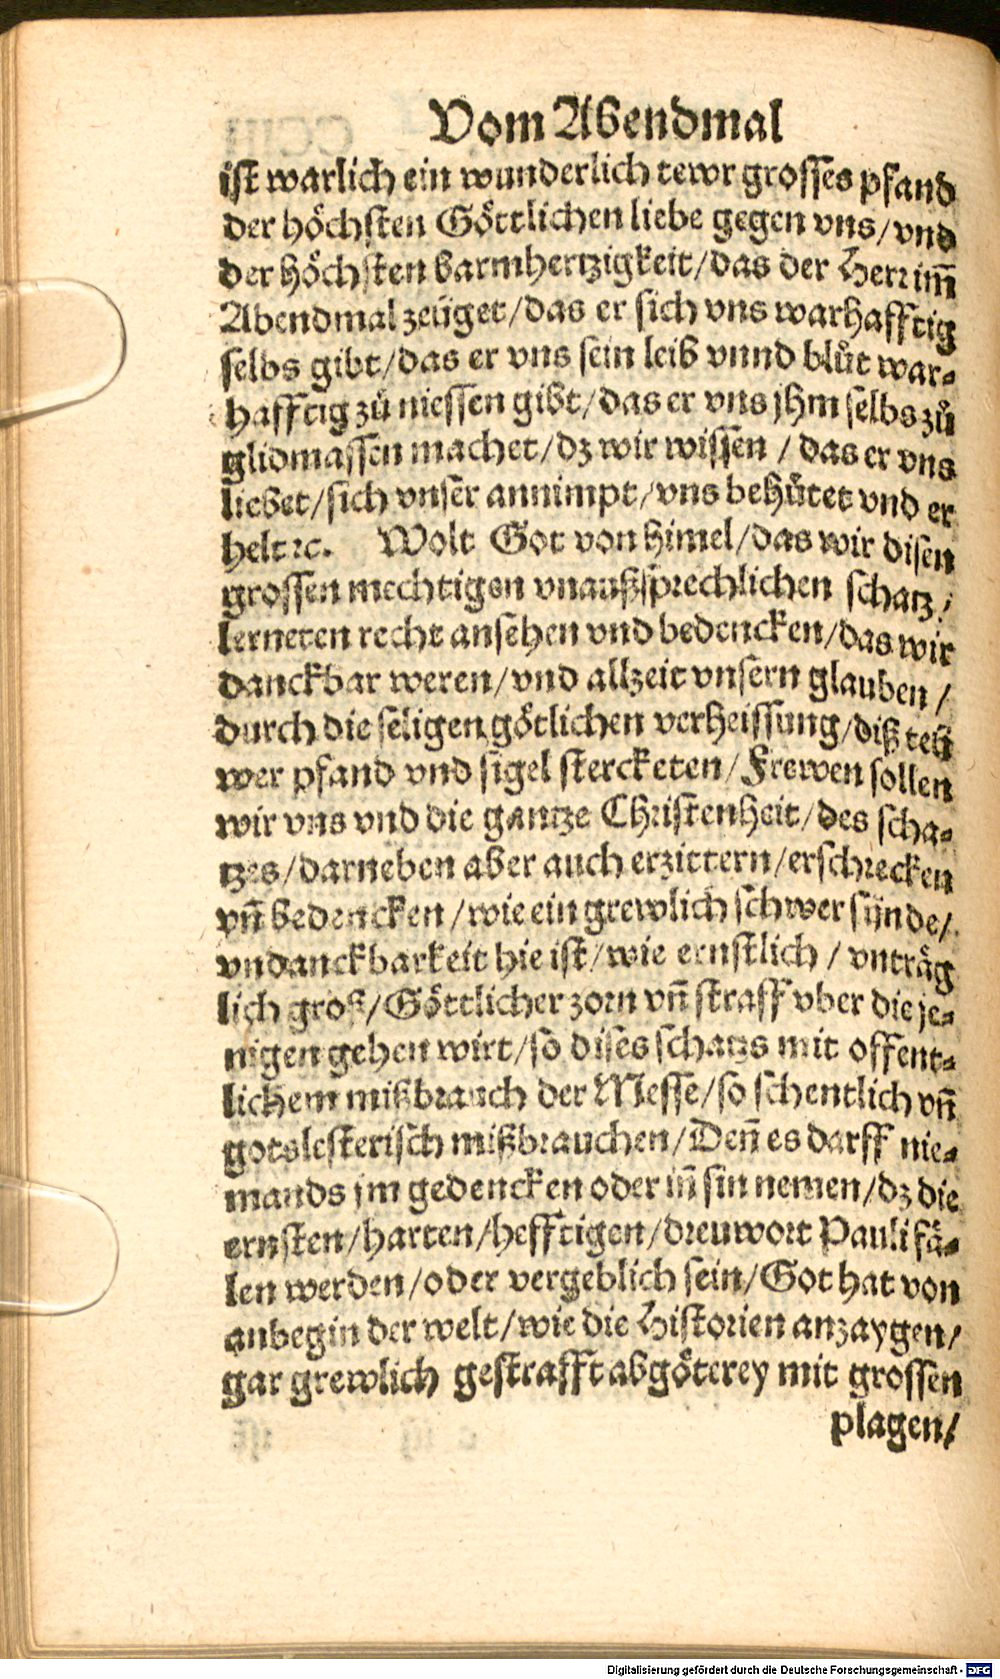 Vom Abendmal
ist warlich ein wunderlich tewr grosses pfand
der höchsten Göttlichen liebe gegen vns/vnd
der höchsten barmhertzigkeit/das der Herr im̃
Abendmal zeüget/das er sich vns warhafftig
selbs gibt/das er vns sein leib vnnd blůt war⸗
hafftig zů niessen gibt/das er vns jhm selbs zů
glidmassen machet/dz wir wissen / das er vns
liebet/sich vnser annimpt/vns behůtet vnd er
helt ꝛc. Wolt Got von himel/das wir disen
grossen mechtigen vnaußsprechlichen schatz/
lerneten recht ansehen vnd bedencken/das wir
danckbar weren/vnd allzeit vnsern glauben /
durch die seligen götlichen verheissung/diß teü
wer pfand vnd sigel sterck eten/Frewen sollen
wir vns vnd die gantze Christenheit/des scha⸗
tzes/darneben aber auch erzittern/erschrecken
vñ bedencken/wie ein grewlich schwer sünde/
vndanckbarkeit hie ist/wie ernstlich / vnträg
lich groß/Göttlicher zorn vñ straff vber die je⸗
nigen gehen wirt/so dises schatzs mit offent⸗
lichem mißbrauch der Messe/so schentlich vñ
gotslesterisch mißbrauchen/Deñ es darff nie⸗
mands jm gedencken oder iñ sin nemen/dz die
ernsten/harten/hefftigen/dreuwort Pauli fä⸗
len werden/oder vergeblich sein/Got hat von
anbegin der welt/wie die Historien anzaygen/
gar grewlich gestrafft abgöterey mit grossen
plagen/
Digitalisierung gefördert durch die Deutsche Forschungsgemeinschaft - DFG